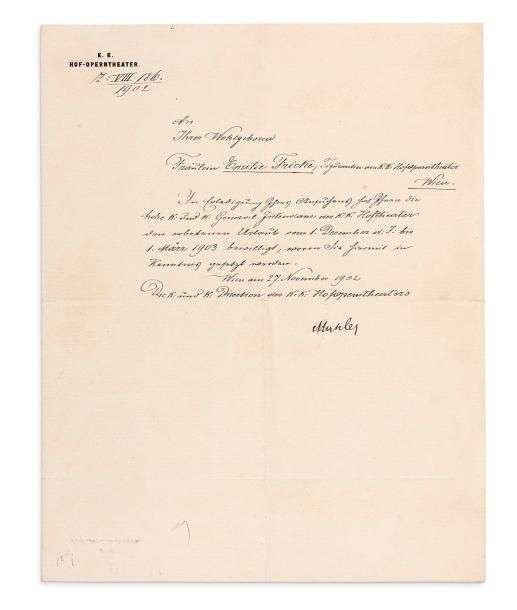 K. K.
HOF-OPERNTHEATER
Z. VIII 186.
1902
An
Ihrer Wohlgeboren
Fräulein Emilie Fricke, Figurantin am K.K. Hofoperntheater
Wien.
In Erledigung Ihres Ansuchens hat Ihnen die
hohe K. und K. General Intendanz der K.K. Hoftheater
den erbetenen Urlaub vom 1. December d. J. bis
1. März 1903 bewilligt, wovon Sie hiermit in
Kenntnis gesetzt werden.
Wien am 27. November 1902
Die K. und K. Direction des K.K. Hofoperntheaters
Mahler